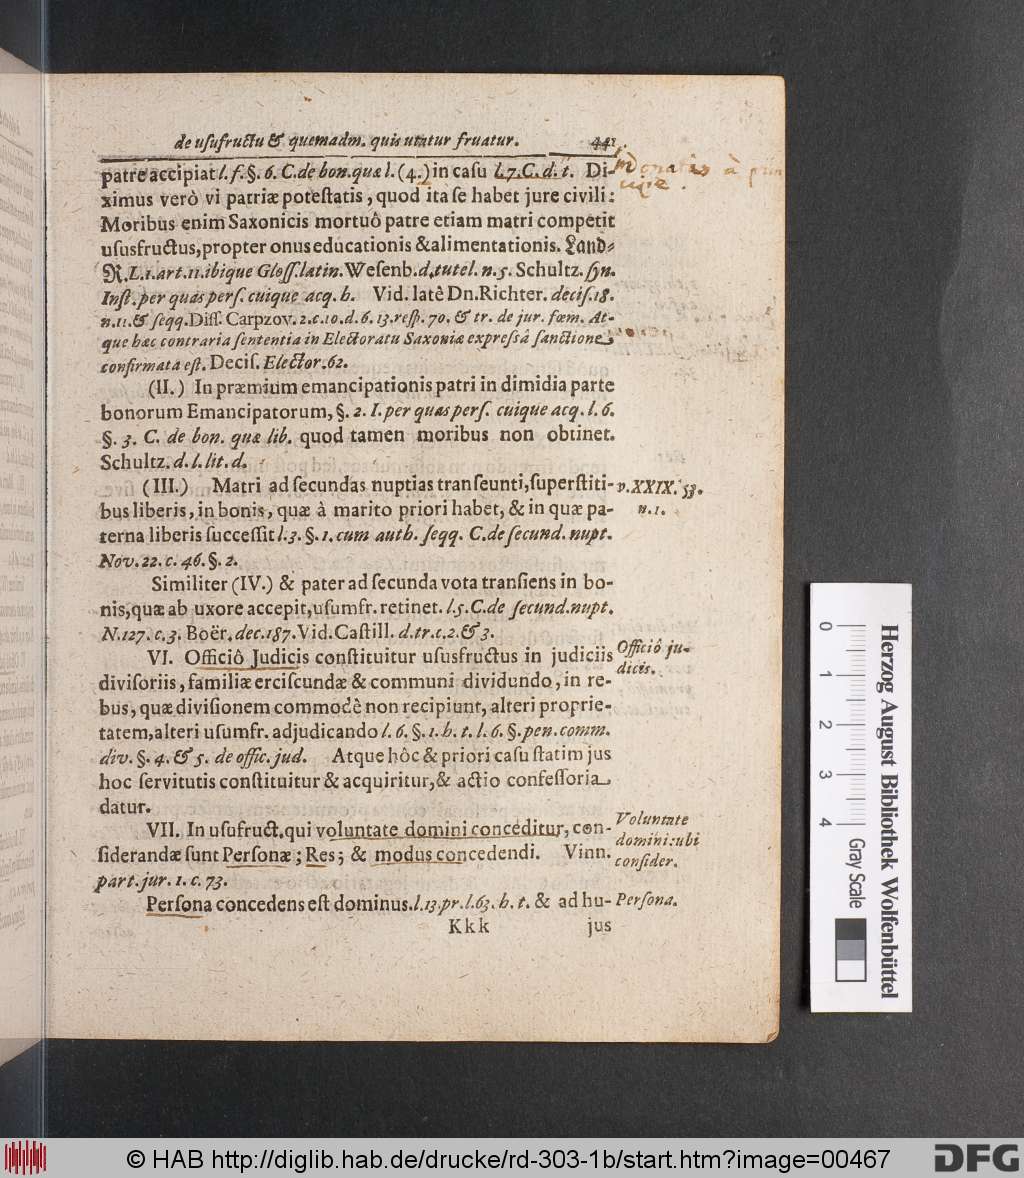 de uſufructu & quemadm. quis utatur fruatur. 441
patre accipiat l. f. §. 6. C. de bon. quæ l. (4.) in caſu l. 7. C. d. t. Di-
ximus verò vi patriæ poteſtatis, quod ita ſe habet jure civili:
Moribus enim Saxonicis mortuô patre etiam matri competit
uſusfructus, propter onus educationis & alimentationis. Land-
R. L. 1. art. 11. ibique Gloſſ. latin. Weſenb. d. tutel. n. 5. Schultz. ſyn.
Inſt. per quas perſ. cuique acq. h. Vid. latê Dn. Richter. deciſ. 18.
n. 11. & ſeqq. Diſſ. Carpzov. 2. c. 10. d. 6. 13. reſp. 70. & tr. de jur. fœm. At-
que hæc contraria ſententia in Electoratu Saxoniæ expreſsâ ſanctione
confirmata eſt. Deciſ. Elector. 62.
(II.) In præmium emancipationis patri in dimidia parte
bonorum Emancipatorum, §. 2. I. per quas perſ. cuique acq. l. 6.
§. 3. C. de bon. quæ lib. quod tamen moribus non obtinet.
Schultz. d. l. lit. d.
(III.) Matri ad ſecundas nuptias tranſeunti, ſuperſtiti-
bus liberis, in bonis, quæ à marito priori habet, & in quæ pa-
terna liberis ſucceſſit l. 3. §. 1. cum auth. ſeqq. C. de ſecund. nupt.
Nov. 22. c. 46. §. 2.
Similiter (IV.) & pater ad ſecunda vota tranſiens in bo-
nis, quæ ab uxore accepit, uſumfr. retinet. l. 5. C. de ſecund. nupt.
N. 127. c. 3. Boër. dec. 187. Vid. Caſtill. d. tr. c. 2. & 3.
VI. Officiô Judicis conſtituitur uſusfructus in judiciis
diviſoriis, familiæ erciſcundæ & communi dividundo, in re-
bus, quæ diviſionem commodè non recipiunt, alteri proprie-
tatem, alteri uſumfr. adjudicando l. 6. §. 1. h. t. l. 6. §. pen. comm.
div. §. 4. & 5. de offic. jud. Atque hôc & priori caſu ſtatim jus
hoc ſervitutis conſtituitur & acquiritur, & actio confeſſoria
datur.
VII. In uſufruct. qui voluntate domini conceditur, con-
ſiderandæ ſunt Perſonæ; Res; & modus concedendi. Vinn.
part. jur. 1. c. 73.
Perſona concedens eſt dominus. l. 13. pr. l. 63. h. t. & ad hu-
Kkk jus
donatis à prin
cipe.
v. XXIX. 53.
n. 1.
Officiô ju-
dicis.
Voluntate
domini: ubi
conſider.
Perſona.
0 1 2 3 4
Gray Scale
Herzog August Bibliothek Wolfenbüttel
© HAB http://diglib.hab.de/drucke/rd-303-1b/start.htm?image=00467
DFG